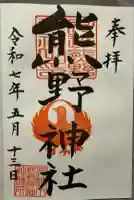 奉拝
熊野神社
令和七年五月十三日